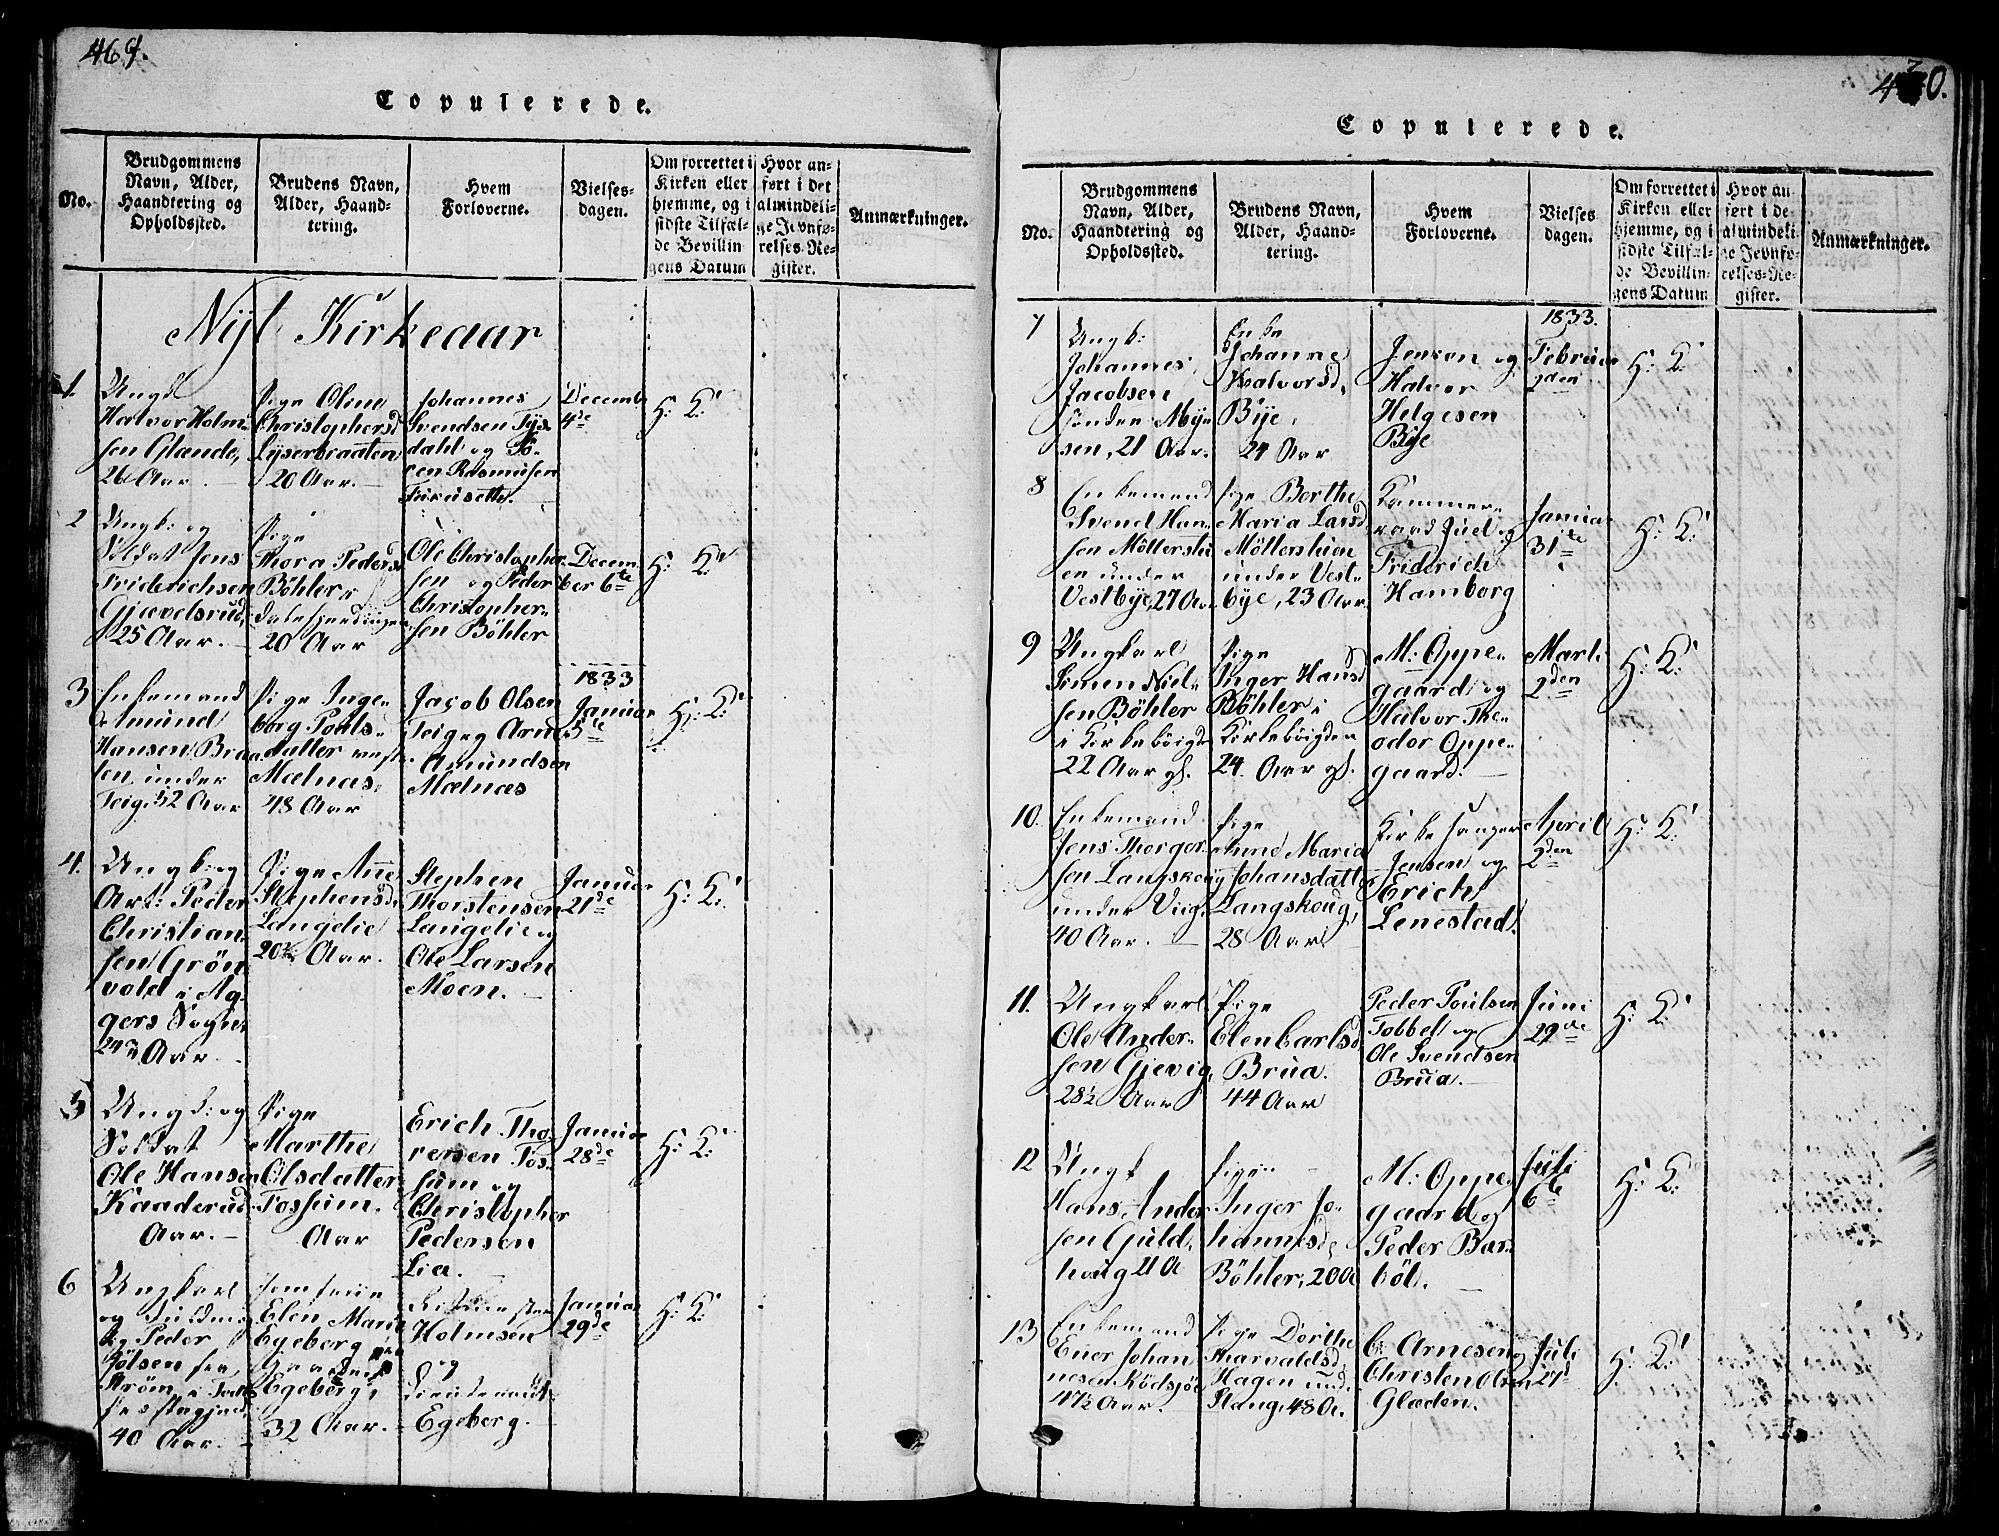 469.
Copulerede.
No.
Brudgommens
Navn, Alder,
Haandtering og
Opholdssted.
Brudens Navn,
Alder, Haand-
tering.
Hvem
Forloverne.
Vielses-
dagen.
Om forrettet i
Kirken eller
hjemme, og i
sidste Tilfæl-
de Bevillin-
gens Datum
Hvor an-
ført i det
almindeli-
ge Jevnfø-
relses-Re-
gister.
Anmærkninger.
Nÿt Kirkeaar
1.
Ungk
Halvor Holm-
sen Glænde,
26 Aar
Pige Oline
Christophersd
Lÿserbraaten
20 Aar.
Johannes
Svendsen Tÿs
dahl og So-
ren Rasmusen
Decemb
4de
H: K:
2
Ungk: og
Soldat Jens
Friderichsen
Gjævelsrud
25 Aar.
Pige
Thora Peders
Böhler
20 Aar
Ole Christopher
sen og Peder
Christopher-
sen Böhler
Decem-
ber 6te
H: K:
3
Enkemand
Amund
Hansen Braa
ten under
Teig, 52 Aar
Pige Inge-
borg Pouls-
datter
Mælnæs,
48 Aar
Jacob Olsen
Teig og Arne
Amundsen
Mælnæs
1833
Januar
5te
H: K:
4.
Ungk: og
Art: Peder
Christian-
sen Grön-
vold i Ag-
gers Sogn
24 Aar
Pige Añe
Stephensd
Langelie
20½ Aar.
Stephen
Thorstensen
Langelie og
Ole Larsen
Moen.
Januar
21de
H: K:
5
Ungk: og
Soldat
Ole Hansen
Kaaderud
Aar.
Pige
Marthe
Olsdatter
Fossum.
Aar
Erich Tho
resen Fos-
sum og
Christopher
Pedersen
Lia.
Januar
28de
H: K:
6
Ungkarl
og
Peder
Jölsen fra
Ström
40 Aar.
Jomfrue
Elen Marie
Egeberg
Egeberg,
32 Aar.
Holmsen
og
Egeberg.
Januar
29de
H: K:
470.
Copulerede.
No.
Brudgommens
Navn, Alder,
Haandtering og
Opholdssted.
Brudens Navn,
Alder, Haand-
tering.
Hvem
Forloverne.
Vielses
dagen.
Om forrettet i
Kirken eller
hjemme, og i
sidste Tilfæl-
de Bevillin-
gens Datum
Hvor an-
ført i de-
almindeli-
ge Jevnfø-
relses-Re-
gister.
Anmærkninger.
7
Ungk:
Johannes
Jacobsen
sönder Mÿr
sen, 21 Aar.
Enke
Johanne
Halvorsd,
Bÿe,
24 Aar
Jensen og
Halvor
Helgesen
Bÿe
1833.
Februar
2den
H: K:
8
Enkemand
Svend Han-
sen Möllerstu
en under
Vestbÿe, 27 Aar
Pige Berthe
Maria Larsd
Möllerstuen
under Vest-
bÿe, 23 Aar.
Kammer-
raad Juel og
Friderich
Hamborg
Januar
31te
H: K:
9
Ungkarl
Simen Niel-
sen Böhler
i Kirkeböigde
22 Aar gl.
Pige
Inger Hansd
Böhler i
Kirkeböigden
24 Aar gl.
M: Oppe-
gaard og
Halvor The-
odor Oppe-
gaard.
Marti
2den
H: K:
10.
Enkemand
Jens Thorger-
sen Langskoug
under Viig
40 Aar.
Pige
Anne Maria
Johansdatter
Langskoug,
28 Aar
Kirkesanger
Jensen og
Erich
Lenestad.
April
2den
H: K:
11.
Ungkarl
Ole Ander-
sen Gjevig,
28½ Aar
Pige
Elen Carlsd
Brua.
44 Aar
Peder Poulsen
Tobbel og
Ole Svendsen
Brua.
Juni
29de
H: K:
12
Ungk
Hans Ander
sen Guld-
houg 21 A
Pige
Inger Jo-
hannesd,
Böhler, 20 A
M: Oppe-
gaard og
Peder Bar-
böl.
Juli
6te
H: K:
13
Enkemand
Ener Johan
nesen Rödsjöe
47½ Aar.
Pige Dorthe
Harvaldsd,
Hagen und-
Haug, 48 A.
C: Arnesen og
Christen Olsen
Glæden.
Juli
27d
H: K: